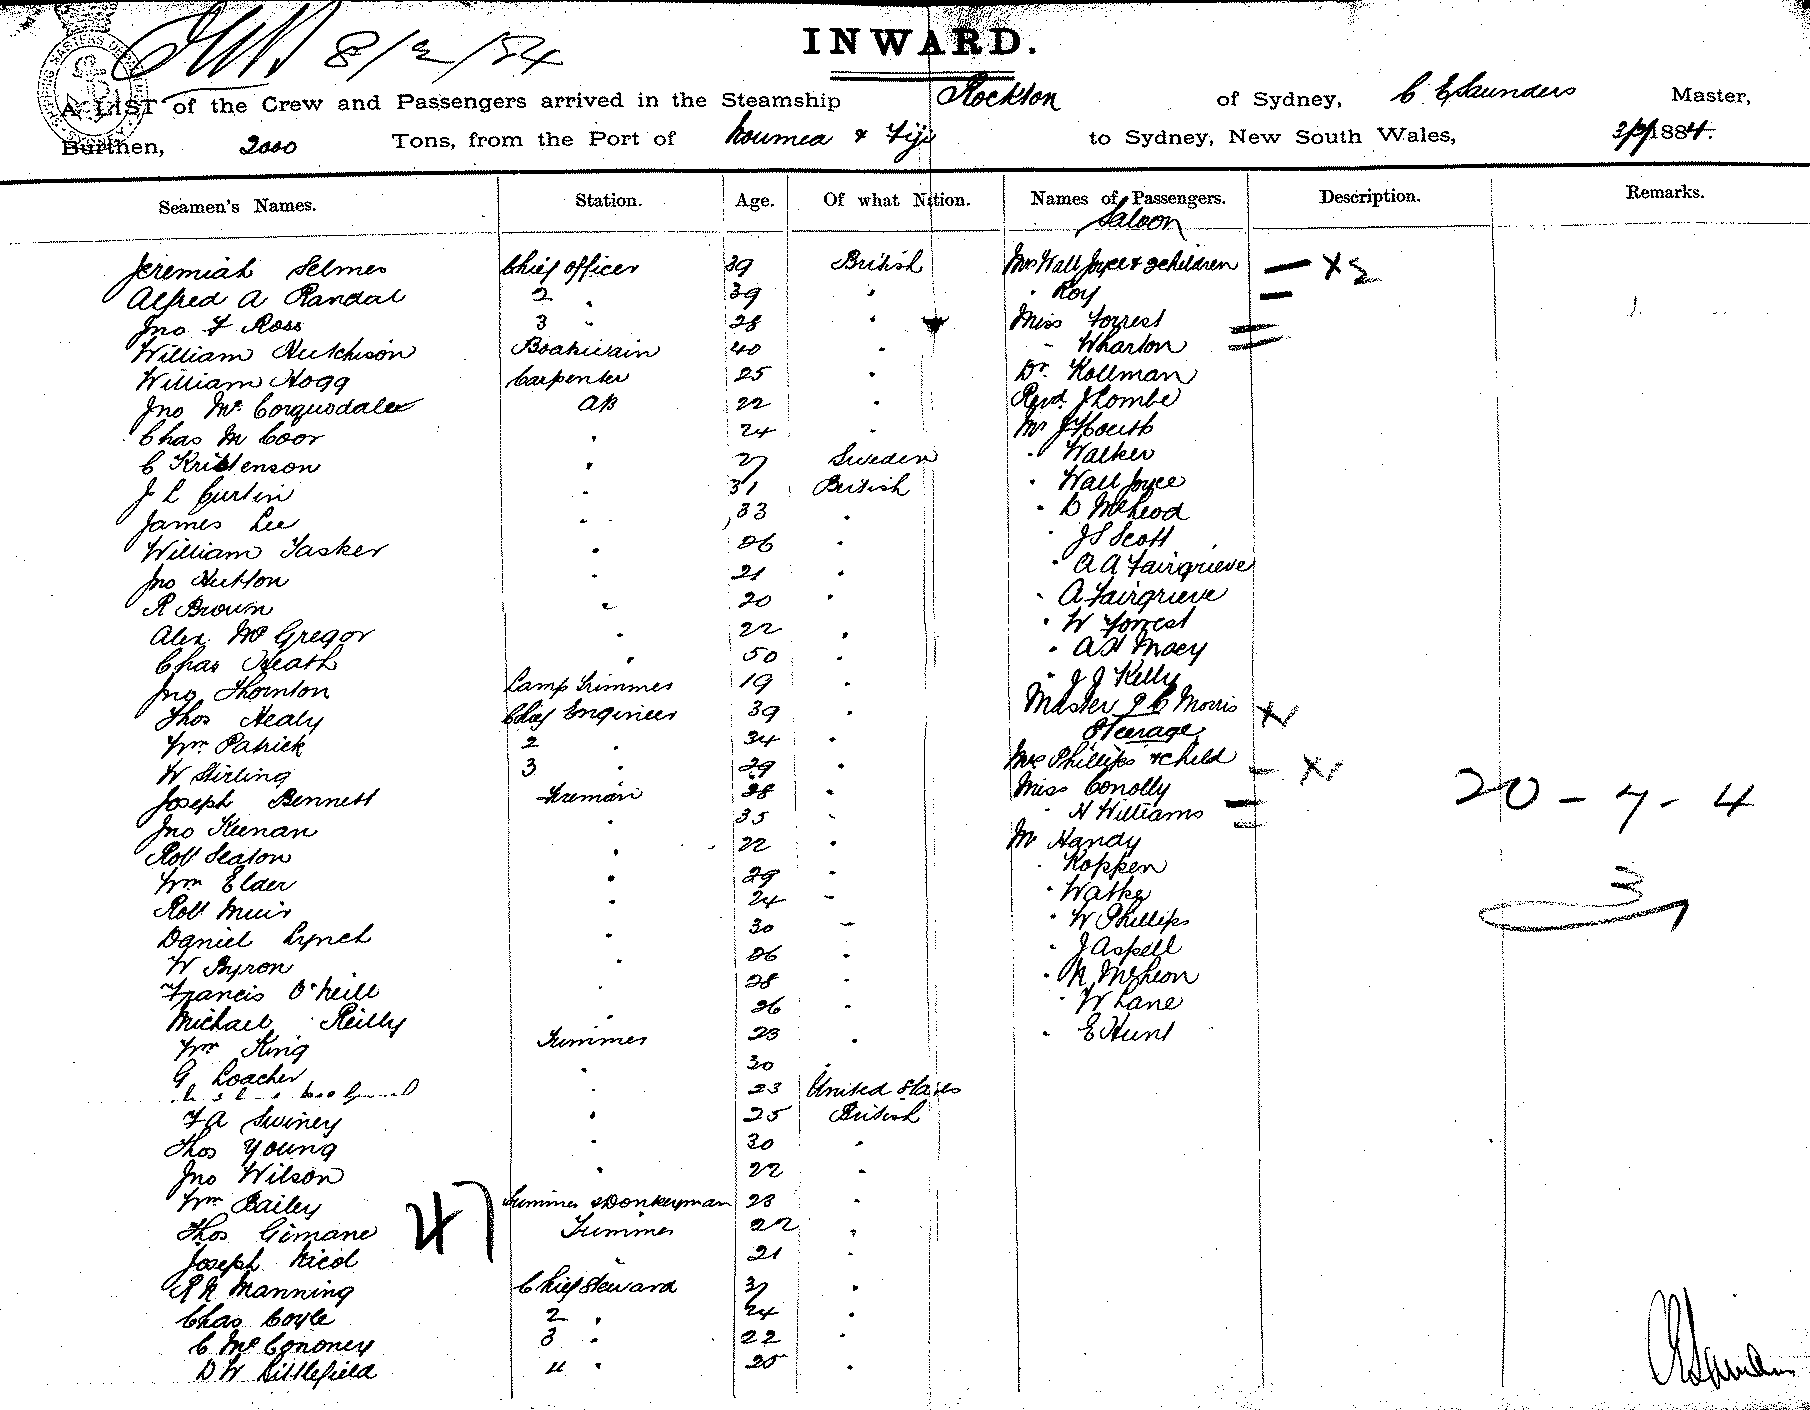 8/3/84
INWARD.
A LIST of the Crew and Passengers arrived in the Steamship Rockton of Sydney, C E Saunders Master,
Burthen, 2000 Tons, from the Port of Noumea & Fiji to Sydney, New South Wales, 3/3/1884.
Seamen's Names. Station. Age. Of what Nation. Names of Passengers. Description. Remarks.
Saloon
Jeremiah Selmes Chief Officer 39 British Mrs Wall Joyce & 3 children
Alfred A Randal 2 " 39 " " Roy
Jno F Ross 3 " 28 " Miss Forrest
William Hutchison Boatswain 40 " " Wharton
William Hogg Carpenter 25 " Dr. Kollman
Jno Mc Corquodale AB 22 " Revd. J Lombe
Chas M Coor " 24 " Mr J Routh
C Kristenson " 27 Sweden " Walker
J L Curtin " 31 British " Wall Joyce
James Lee " 33 " " D McLeod
William Tasker " 26 " " J S Scott
Jno Hutton " 21 " " A A Fairgrieve
R Brown " 20 " " A Fairgrieve
Alex Mc Gregor " 22 " " W Forrest
Chas Heath " 50 " " A H Macy
Jno Thornton Lamp Trimmer 19 " " J J Kelly
Thos Healy Chief Engineer 39 " Master J C Morris
Steerage
Wm Patrick 2 " 34 " Mrs Phillips & child
W Stirling 3 " 29 " Miss Conolly
Joseph Bennett Fireman 28 " " H Williams
Jno Keenan " 35 " Mr Handy
Robt Seaton " 22 " " Koppen
Wm Elder " 29 " " Watke
Robt Muir " 24 " " W Phillips
Daniel Lynch " 30 " " J Aspell
W Byron " 26 " " N McGheon
Francis O'Neill " 28 " " W Lane
Michael Reilly " 26 " " E Hunt
Wm King Trimmer 23 "
G Loacher " 30 "
" 23 United States
F A Swiney " 25 British
Thos Young " 30 "
Jno Wilson " 22 "
Wm Bailey Trimmer & Donkeyman 23 "
Thos Gimane Trimmer 22 "
Joseph Nicol " 21 "
R N Manning Chief Steward 37 "
Chas Coyle 2 " 24 "
C Mc Cononey 3 " 22 "
D W Littlefield 4 " 25 "
47
20 - 7 - 4
3
C E Saunders